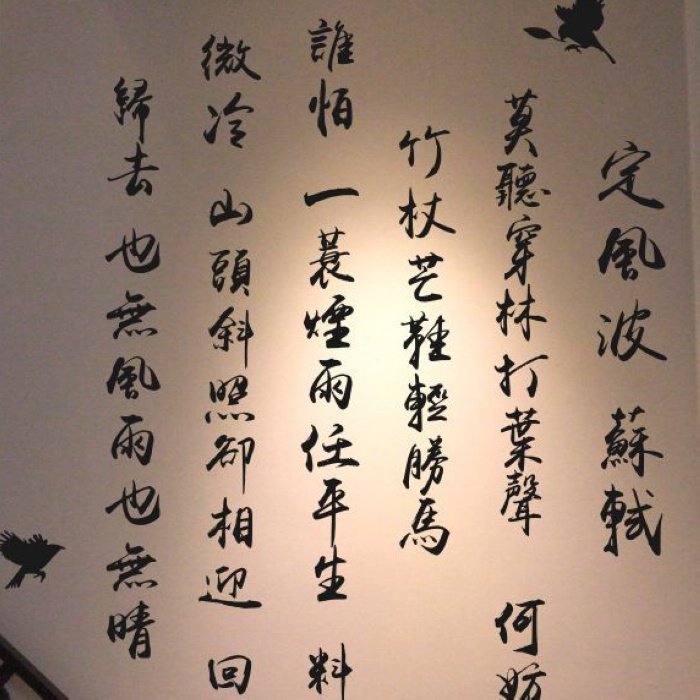 定風波 蘇軾
莫聽穿林打葉聲 何妨
竹杖芒鞋輕勝馬
誰怕 一蓑煙雨任平生 料
微冷 山頭斜照卻相迎 回
歸去 也無風雨也無晴